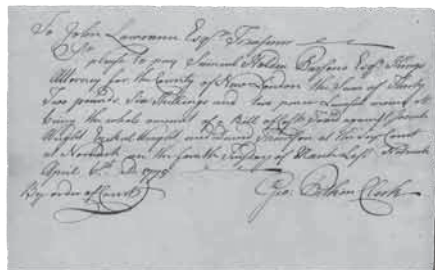 To John Lawrence Esqr. Treasurer
Sir
please to pay Samuel Holden Parsons Esqr. Kings
Attorney for the County of New London the Sum of Thirty
Two pounds Six Shillings and two pence Lawful money
being the whole amount of a Bill of Cost against
Wright Ezekiel Wright and at Court
at Norwich on the Tuesday of March Last Norwich
April 6th AD 1773
By order of Court
Geo: Clerk